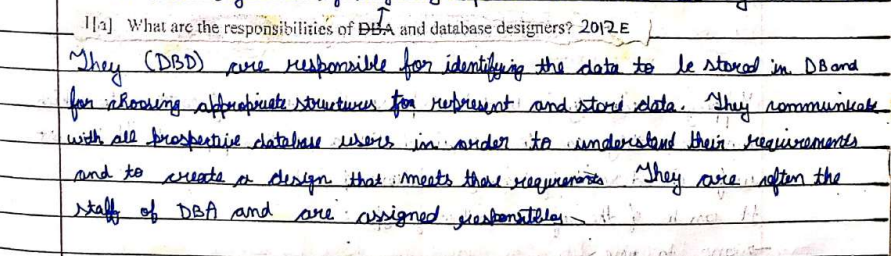 1[a] What are the responsibilities of DBA and database designers? 2012E
They (DBD) are responsible for identifying the data to be stored in DB and
for choosing appropriate structures for represent and store data. They communicate
with all prospective database users in order to understand their requirements
and to create a design that meets these requirements They are often the
staff of DBA and are assigned